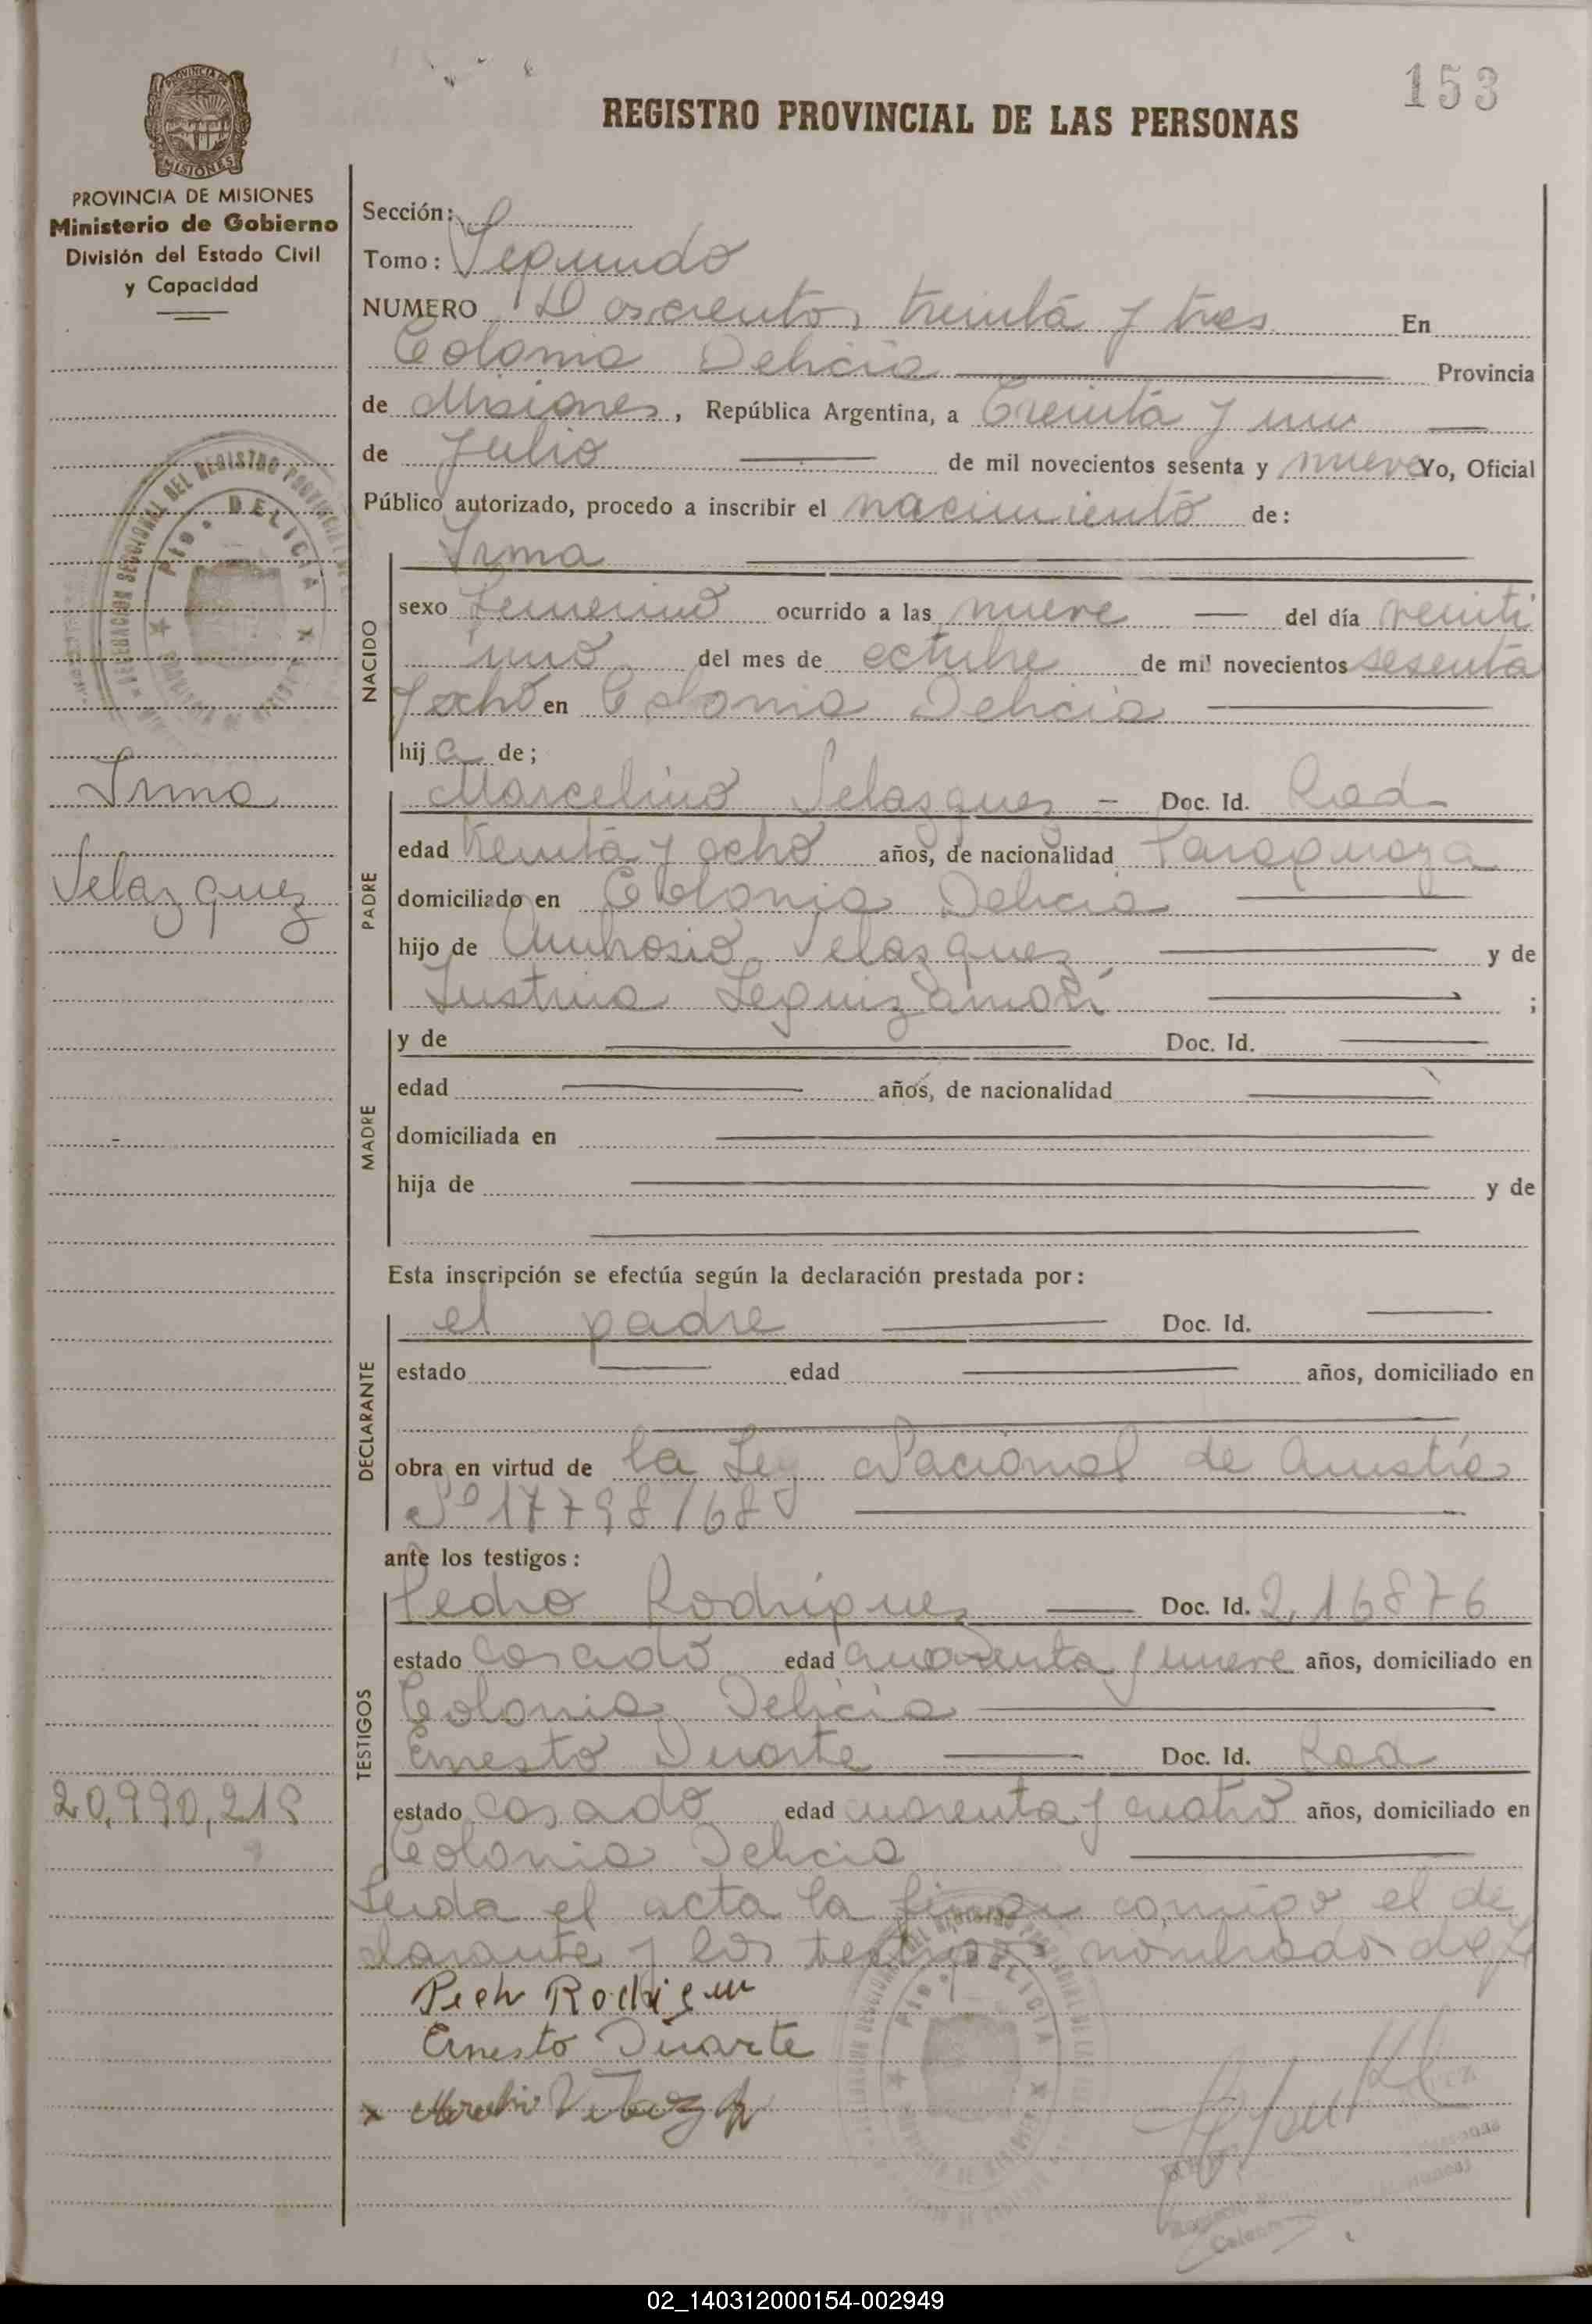 153
REGISTRO PROVINCIAL DE LAS PERSONAS
PROVINCIA DE MISIONES
Ministerio de Gobierno
División del Estado Civil
y Capacidad
Irma
Velazquez
20,990,219
Sección:
Tomo: Segundo
NUMERO Doscientos treinta y tres En
Colonia Delicia Provincia
de Misiones, República Argentina, a Treinta y uno
de Julio de mil novecientos sesenta y nueve Yo, Oficial
Público autorizado, procedo a inscribir el nacimiento de:
NACIDO
Irma
sexo femenino ocurrido a las nueve del día veinti
uno del mes de octubre de mil novecientos sesenta
y ocho en Colonia Delicia
hija de;
PADRE
Marcelino Velazquez - Doc. Id.
edad treinta y ocho años, de nacionalidad Paraguaya
domiciliado en Colonia Delicia
hijo de Ambrosio Velazquez y de
Justina Leguizamón ;
MADRE
y de Doc. Id.
edad años, de nacionalidad
domiciliada en
hija de y de
Esta inscripción se efectúa según la declaración prestada por:
DECLARANTE
el padre Doc. Id.
estado edad años, domiciliado en
obra en virtud de la Ley Nacional de Amistía
Nº 17798/68
ante los testigos:
TESTIGOS
Pedro Rodriguez Doc. Id. 2,16876
estado casado edad cuarenta y nueve años, domiciliado en
Colonia Delicia
Ernesto Duarte Doc. Id.
estado casado edad cuarenta y cuatro años, domiciliado en
Colonia Delicia
Leida el acta la firman conmigo el de
clarante y los testigos nombrados
Ernesto Duarte
02_140312000154-002949